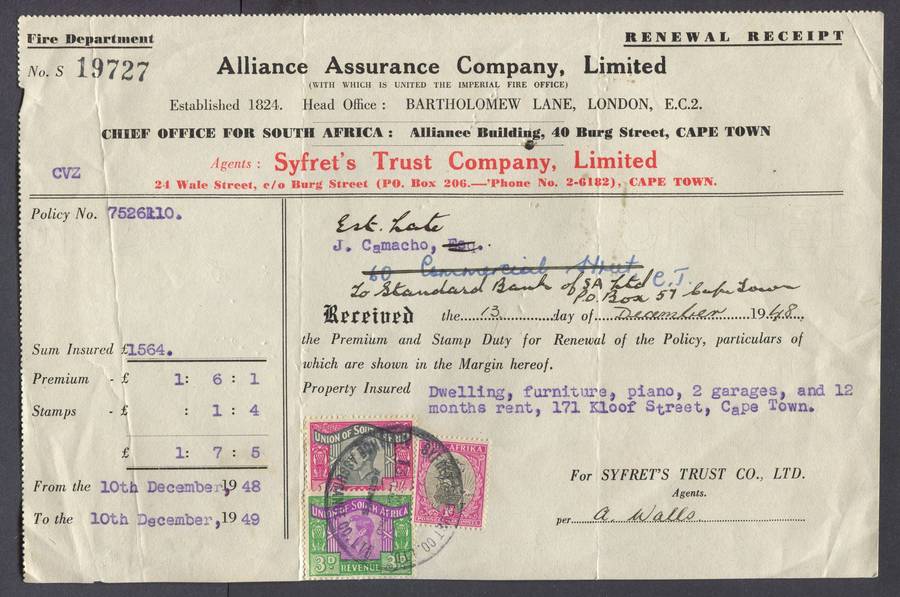 Fire Department
RENEWAL RECEIPT
No. S 19727
Alliance Assurance Company, Limited
(WITH WHICH IS UNITED THE IMPERIAL FIRE OFFICE)
Established 1824. Head Office : BARTHOLOMEW LANE, LONDON, E.C.2.
CHIEF OFFICE FOR SOUTH AFRICA : Alliance Building, 40 Burg Street, CAPE TOWN
Agents : Syfret's Trust Company, Limited
CVZ
24 Wale Street, c/o Burg Street (PO. Box 206.—'Phone No. 2-6182), CAPE TOWN.
Policy No. 7526110.
Est. Late
J. Camacho, Esq.
60 Commercial Street C.T.
To Standard Bank of SA Ltd
P.O. Box 57 Cape Town
Received the 13 day of December 1948.
the Premium and Stamp Duty for Renewal of the Policy, particulars of
which are shown in the Margin hereof.
Sum Insured £1564.
Premium - £ 1: 6 : 1
Stamps - £ : 1 : 4
£ 1: 7 : 5
From the 10th December, 19 48
To the 10th December, 19 49
Property Insured Dwelling, furniture, piano, 2 garages, and 12
months rent, 171 Kloof Street, Cape Town.
UNION OF SOUTH AFRICA
UNION OF SOUTH AFRICA
3D REVENUE 3D
AFRICA
For SYFRET'S TRUST CO., LTD.
Agents.
per A. Walls